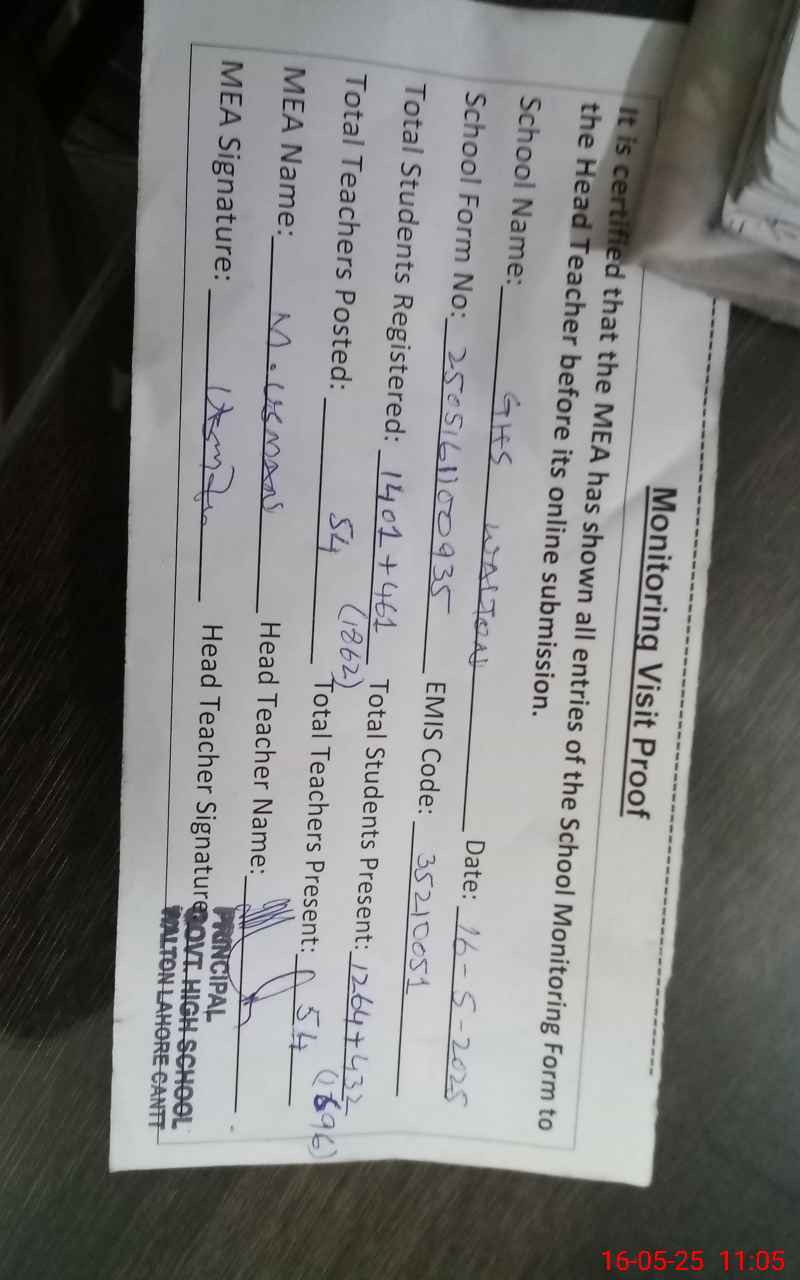 Monitoring Visit Proof
It is certified that the MEA has shown all entries of the School Monitoring Form to
the Head Teacher before its online submission.
School Name: GHS WALTON Date: 16-5-2025
School Form No: 2505161100935 EMIS Code: 35210051
Total Students Registered: 1401+461 (1862) Total Students Present: 1264+432 (1696)
Total Teachers Posted: 54 Total Teachers Present: 54
MEA Name: M. USMAN Head Teacher Name:
MEA Signature: Head Teacher Signature
PRINCIPAL
GOVT. HIGH SCHOOL
WALTON LAHORE CANTT
16-05-25 11:05